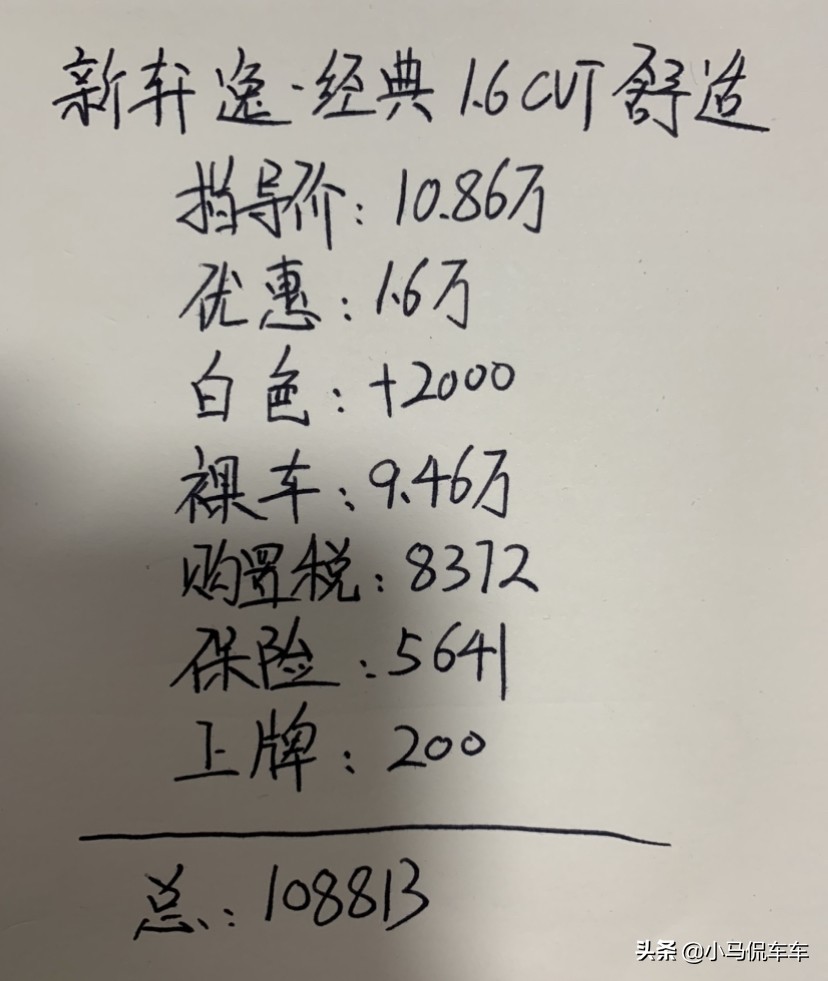 新轩逸·经典 1.6 CVT 舒适
指导价:10.86万
优惠:1.6万
白色:+2000
裸车:9.46万
购置税:8372
保险:5641
上牌:200
总:108813
头条 @小马侃车车